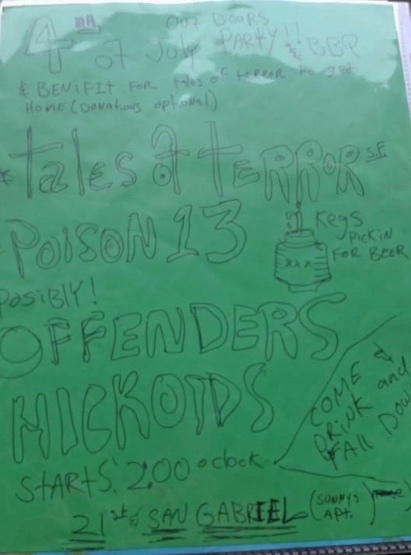 4TH OF JULY OUT DOORS PARTY!! & BBQ
& BENIFIT FOR tales of terror to get
HOME (DONATIONS optional)
* tales of tERROR SF
POISON 13
KEGS
PICKIN
FOR BEER
XXX
POSIBLY!
OFFENDERS
HICKOIDS
COME &
DRINK and
FALL DOWN
STARTS: 2:00 o clock
21st & SAN GABRIEL (SUNNYS
APT.